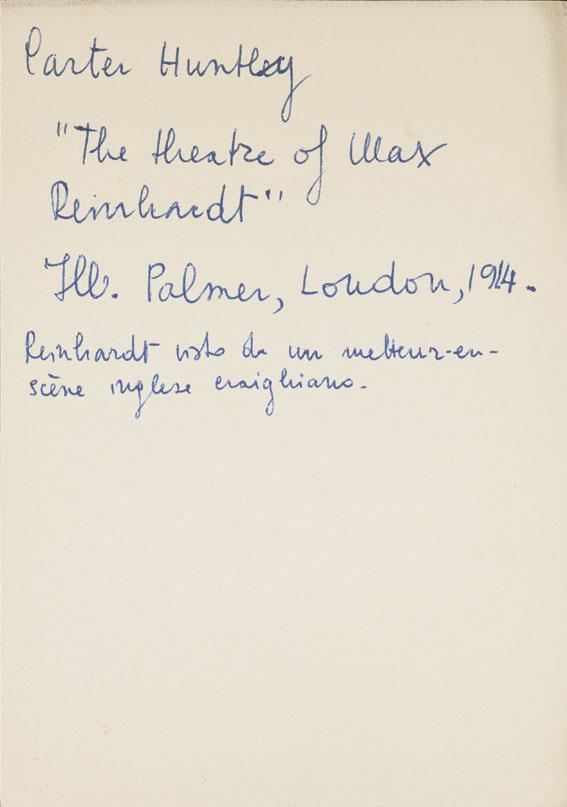 Carter Huntley
"The theatre of Max
Reinhardt"
Ill. Palmer, London, 1914.
Reinhardt visto da un metteur-en-
scène inglese craighiano.